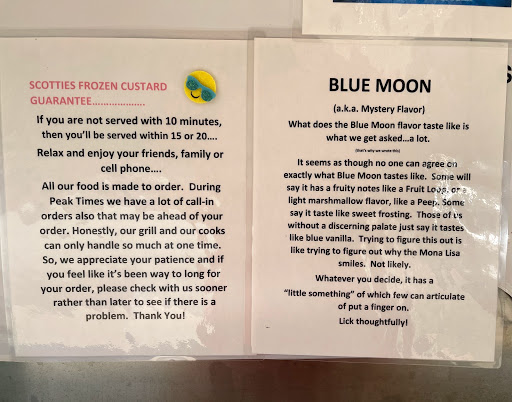 SCOTTIES FROZEN CUSTARD
GUARANTEE..................
If you are not served with 10 minutes,
then you'll be served within 15 or 20....
Relax and enjoy your friends, family or
cell phone....
All our food is made to order. During
Peak Times we have a lot of call-in
orders also that may be ahead of your
order. Honestly, our grill and our cooks
can only handle so much at one time.
So, we appreciate your patience and if
you feel like it's been way to long for
your order, please check with us sooner
rather than later to see if there is a
problem. Thank You!
BLUE MOON
(a.k.a. Mystery Flavor)
What does the Blue Moon flavor taste like is
what we get asked...a lot.
(that's why we wrote this)
It seems as though no one can agree on
exactly what Blue Moon tastes like. Some will
say it has a fruity notes like a Fruit Loop, or a
light marshmallow flavor, like a Peep. Some
say it taste like sweet frosting. Those of us
without a discerning palate just say it tastes
like blue vanilla. Trying to figure this out is
like trying to figure out why the Mona Lisa
smiles. Not likely.
Whatever you decide, it has a
"little something" of which few can articulate
of put a finger on.
Lick thoughtfully!